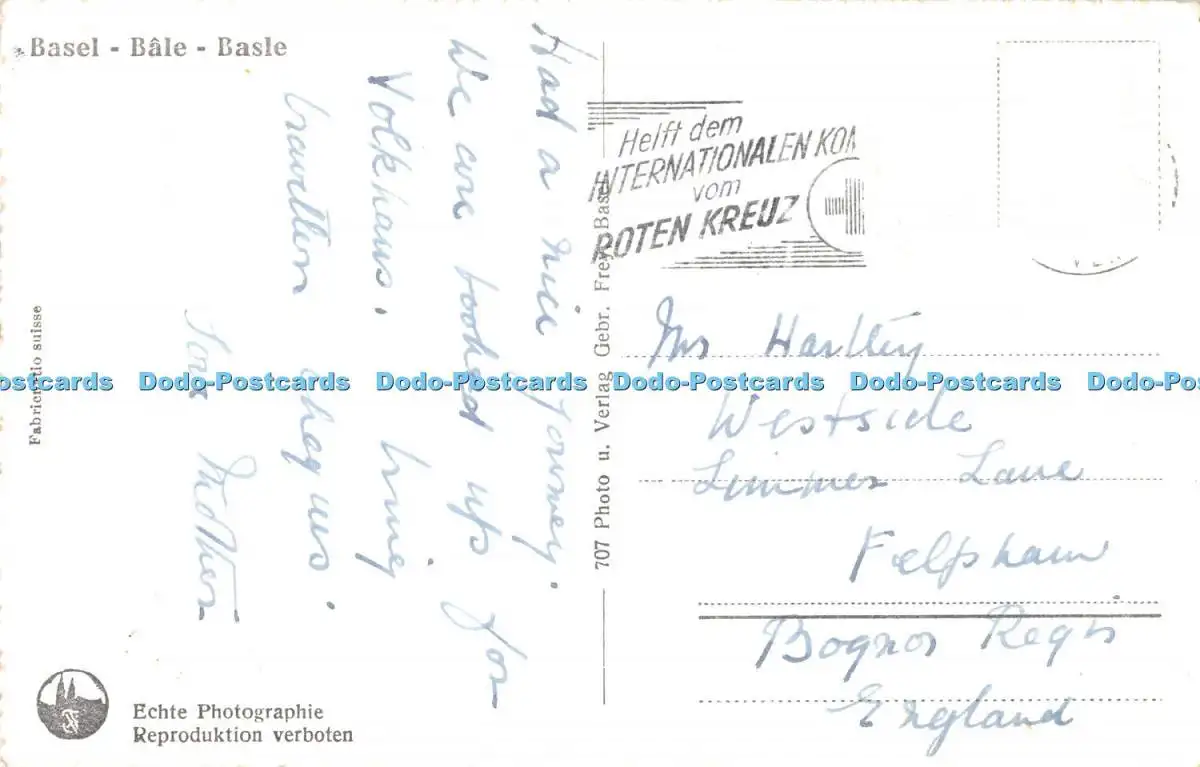 Basel - Bâle - Basle
Had a nice journey.
We are booked up for
Volkhaus.
Mother
Helft dem
INTERNATIONALEN KOM
vom
ROTEN KREUZ
Mrs Hartley
Westside
Limmer Lane
Felpham
Bognor Regis
England
707 Photo u. Verlag Gebr. Frey, Basel
Fabricatio suisse
Dodo-Postcards Dodo-Postcards Dodo-Postcards Dodo-Postcards Dodo-Postcards Dodo-Postcards
Echte Photographie
Reproduktion verboten